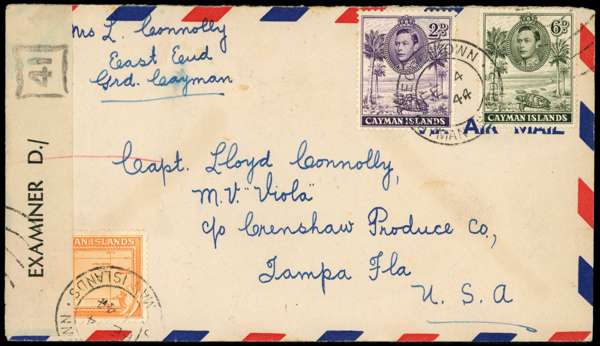 Mrs L. Connolly
East End
Grd. Cayman
41
EXAMINER D./
2½D
CAYMAN ISLANDS
6D
CAYMAN ISLANDS
AIR MAIL
Capt. Lloyd Connolly,
M.V. "Viola"
c/o Crenshaw Produce Co.,
Tampa Fla
U.S.A
MAN ISLANDS